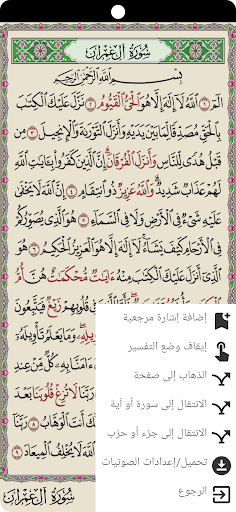 سُورَةُ آلِ عِمْرَانَ
بِسْمِ اللَّهِ الرَّحْمَٰنِ الرَّحِيمِ
الٓمٓ ١ اللَّهُ لَا إِلَٰهَ إِلَّا هُوَ الْحَيُّ الْقَيُّومُ ٢ نَزَّلَ عَلَيْكَ الْكِتَٰبَ
بِالْحَقِّ مُصَدِّقًا لِّمَا بَيْنَ يَدَيْهِ وَأَنزَلَ التَّوْرَىٰةَ وَالْإِنجِيلَ ٣ مِن
قَبْلُ هُدًى لِّلنَّاسِ وَأَنزَلَ الْفُرْقَانَ إِنَّ الَّذِينَ كَفَرُوا بِـَٔايَٰتِ اللَّهِ
لَهُمْ عَذَابٌ شَدِيدٌ وَاللَّهُ عَزِيزٌ ذُو انتِقَامٍ ٤ إِنَّ اللَّهَ لَا يَخْفَىٰ
عَلَيْهِ شَيْءٌ فِي الْأَرْضِ وَلَا فِي السَّمَاءِ ٥ هُوَ الَّذِي يُصَوِّرُكُمْ
فِي الْأَرْحَامِ كَيْفَ يَشَاءُ لَا إِلَٰهَ إِلَّا هُوَ الْعَزِيزُ الْحَكِيمُ ٦ هُوَ
الَّذِي أَنزَلَ عَلَيْكَ الْكِتَٰبَ مِنْهُ ءَايَٰتٌ مُّحْكَمَٰتٌ هُنَّ أُمُّ
قُلُوبِهِمْ زَيْغٌ فَيَتَّبِعُونَ
وَمَا يَعْلَمُ تَأْوِيلَهُ
ءَامَنَّا بِهِ كُلٌّ مِّنْ عِندِ
رَبَّنَا لَا تُزِغْ قُلُوبَنَا بَعْدَ
أَنتَ الْوَهَّابُ ٨ رَبَّنَا
اللَّهَ لَا يُخْلِفُ الْمِيعَادَ ٩
سُورَةُ آلِ عِمْرَانَ
إضافة إشارة مرجعية
إيقاف وضع التفسير
الذهاب إلى صفحة
الانتقال إلى سورة أو آية
الانتقال إلى جزء أو حزب
تحميل/إعدادات الصوتيات
الرجوع